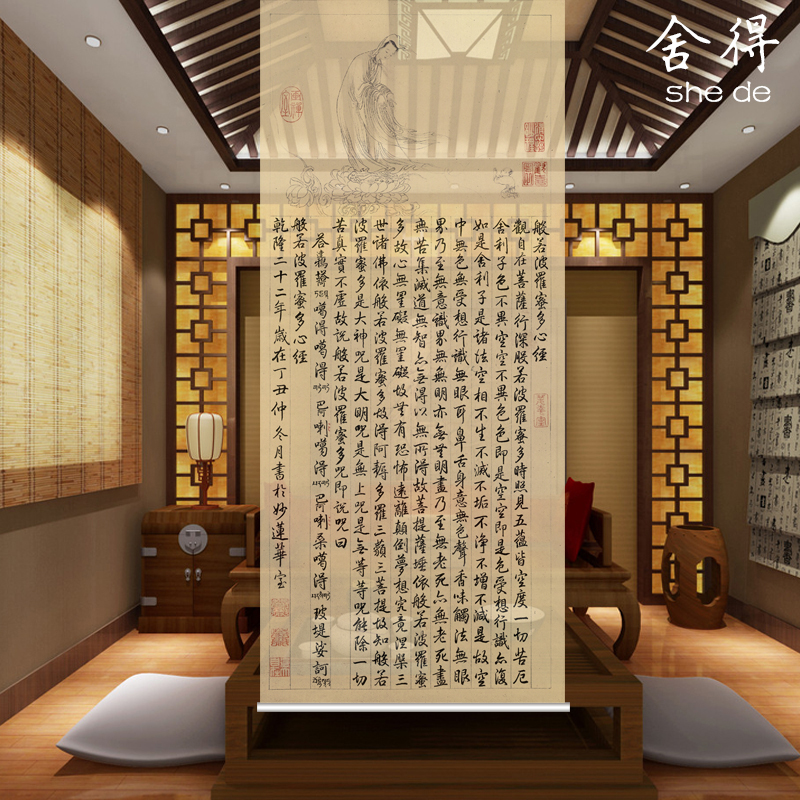 舍得
she de
般若波羅蜜多心經
觀自在菩薩行深般若波羅蜜多時照見五蘊皆空度一切苦厄
舍利子色不異空空不異色色即是空空即是色受想行識亦復
如是舍利子是諸法空相不生不滅不垢不淨不增不減是故空
中無色無受想行識無眼耳鼻舌身意無色聲香味觸法無眼
界乃至無意識界無無明亦無無明盡乃至無老死亦無老死盡
無苦集滅道無智亦無得以無所得故菩提薩埵依般若波羅蜜
多故心無罣礙無罣礙故無有恐怖遠離顛倒夢想究竟涅槃三
世諸佛依般若波羅蜜多故得阿耨多羅三藐三菩提故知般若
波羅蜜多是大神咒是大明咒是無上咒是無等等咒能除一切
苦真實不虛故說般若波羅蜜多咒即說咒曰
噶得噶得 喇噶得 喇桑噶得 玻提娑訶
般若波羅蜜多心經
乾隆二十二年歲在丁丑仲冬月書於妙蓮華室